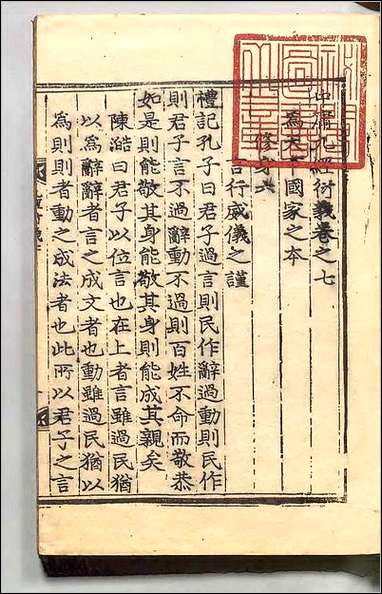 中庸九經衍義卷之七
爲天下國家之本
修身六
言行威儀之謹
禮記孔子曰君子過言則民作辭過動則民作
則君子言不過辭動不過則百姓不命而敬恭
如是則能敬其身能敬其身則能成其親矣
陳澔曰君子以位言也在上者言雖過民猶
以爲辭辭者言之成文者也動雖過民猶以
爲則則者動之成法者也此所以君子之言